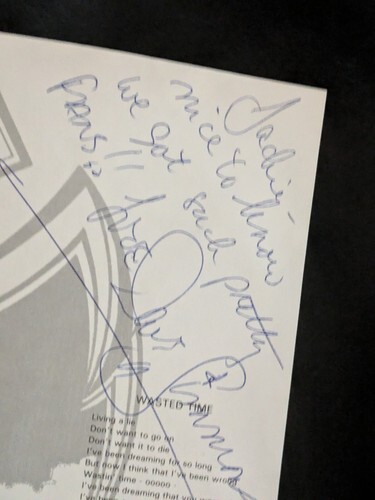 Jackie -
nice to know
we got such pretty
fans!!
love
WASTED TIME
Living a lie
Don't want to go on
Don't want it to die
I've been dreaming for so long
But now I think that I've been wrong
Wastin' time - ooooo -
I've been dreaming that you
I've been